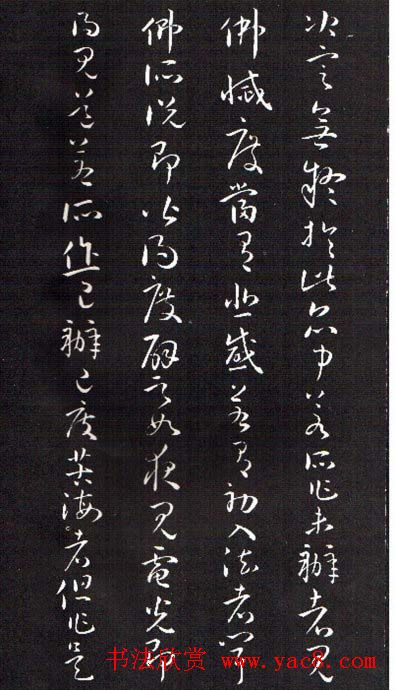 決定無疑於此眾中若所作未辦者見
佛滅度當有悲感若有初入法者聞
佛所說即皆得度譬如夜見電光即
得見道若所作已辦已度苦海者但作是
书法欣赏 www.yac8.com